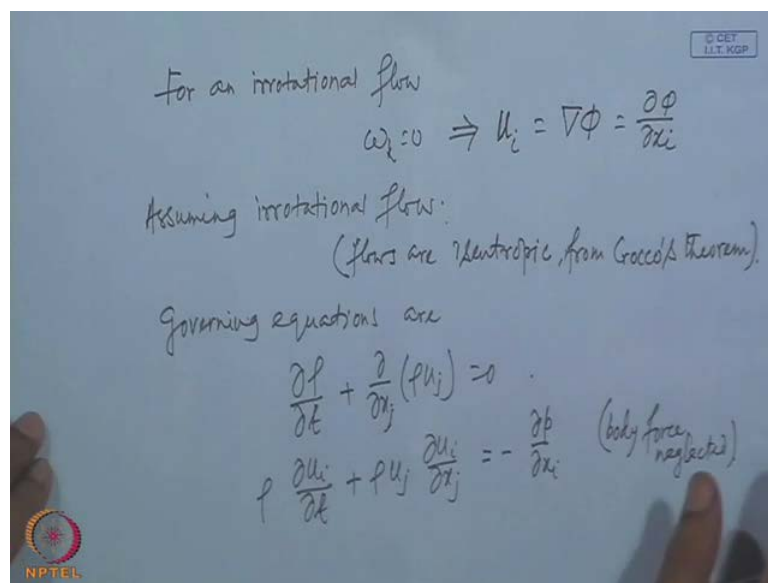 © CET
I.I.T. KGP
For an irrotational flow
ωᵢ=0 ⇒ uᵢ = ∇φ = ∂φ/∂xᵢ
Assuming irrotational flow.
(flows are isentropic, from Crocco's theorem).
Governing equations are
∂ρ/∂t + ∂/∂xⱼ (ρuⱼ) =0 .
ρ ∂uᵢ/∂t + ρuⱼ ∂uᵢ/∂xⱼ = - ∂p/∂xᵢ (body force neglected)
NPTEL